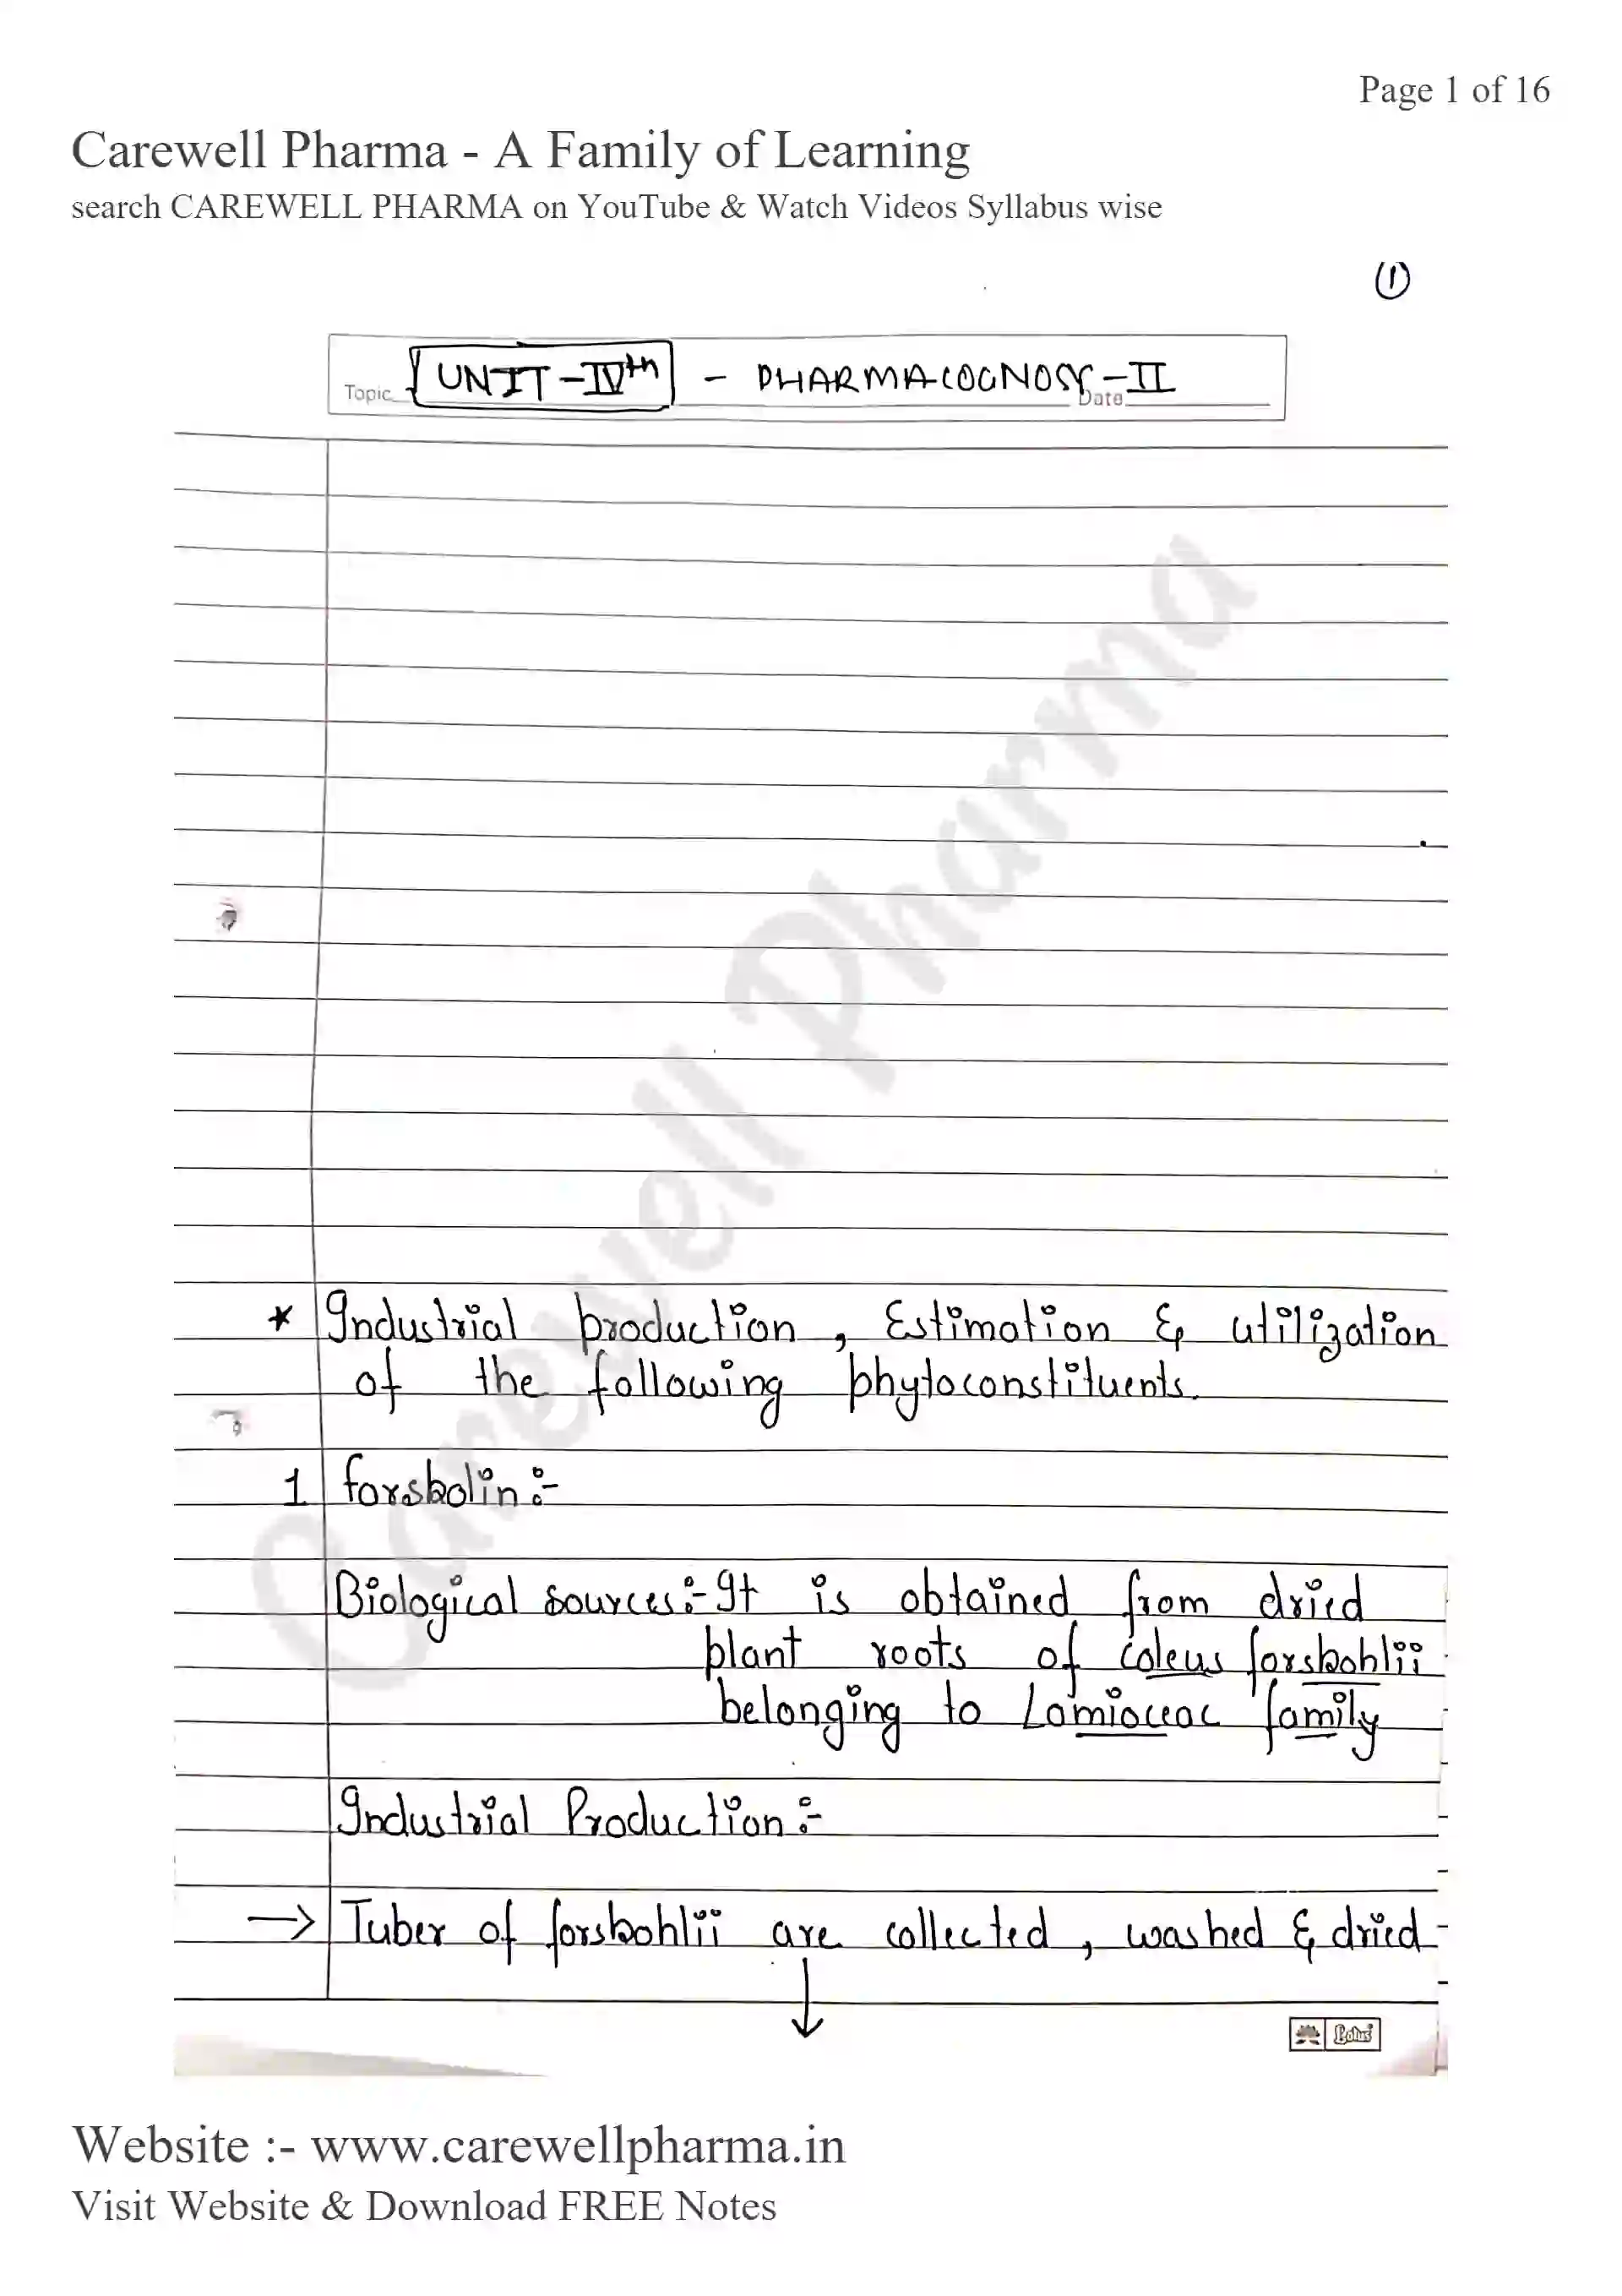 Page 1 of 16
Carewell Pharma - A Family of Learning
search CAREWELL PHARMA on YouTube & Watch Videos Syllabus wise
①
Topic UNIT-IVth - PHARMACOGNOSY-II
Date
Carewell Pharma
* Industrial production, Estimation & utilization
of the following phytoconstituents.
1 forskolin:-
Biological sources:- It is obtained from dried
plant roots of coleus forskohlii
belonging to Lamiaceae family
Industrial Production:-
→ Tuber of forskohlii are collected, washed & dried
↓
Lotus
Website :- www.carewellpharma.in
Visit Website & Download FREE Notes